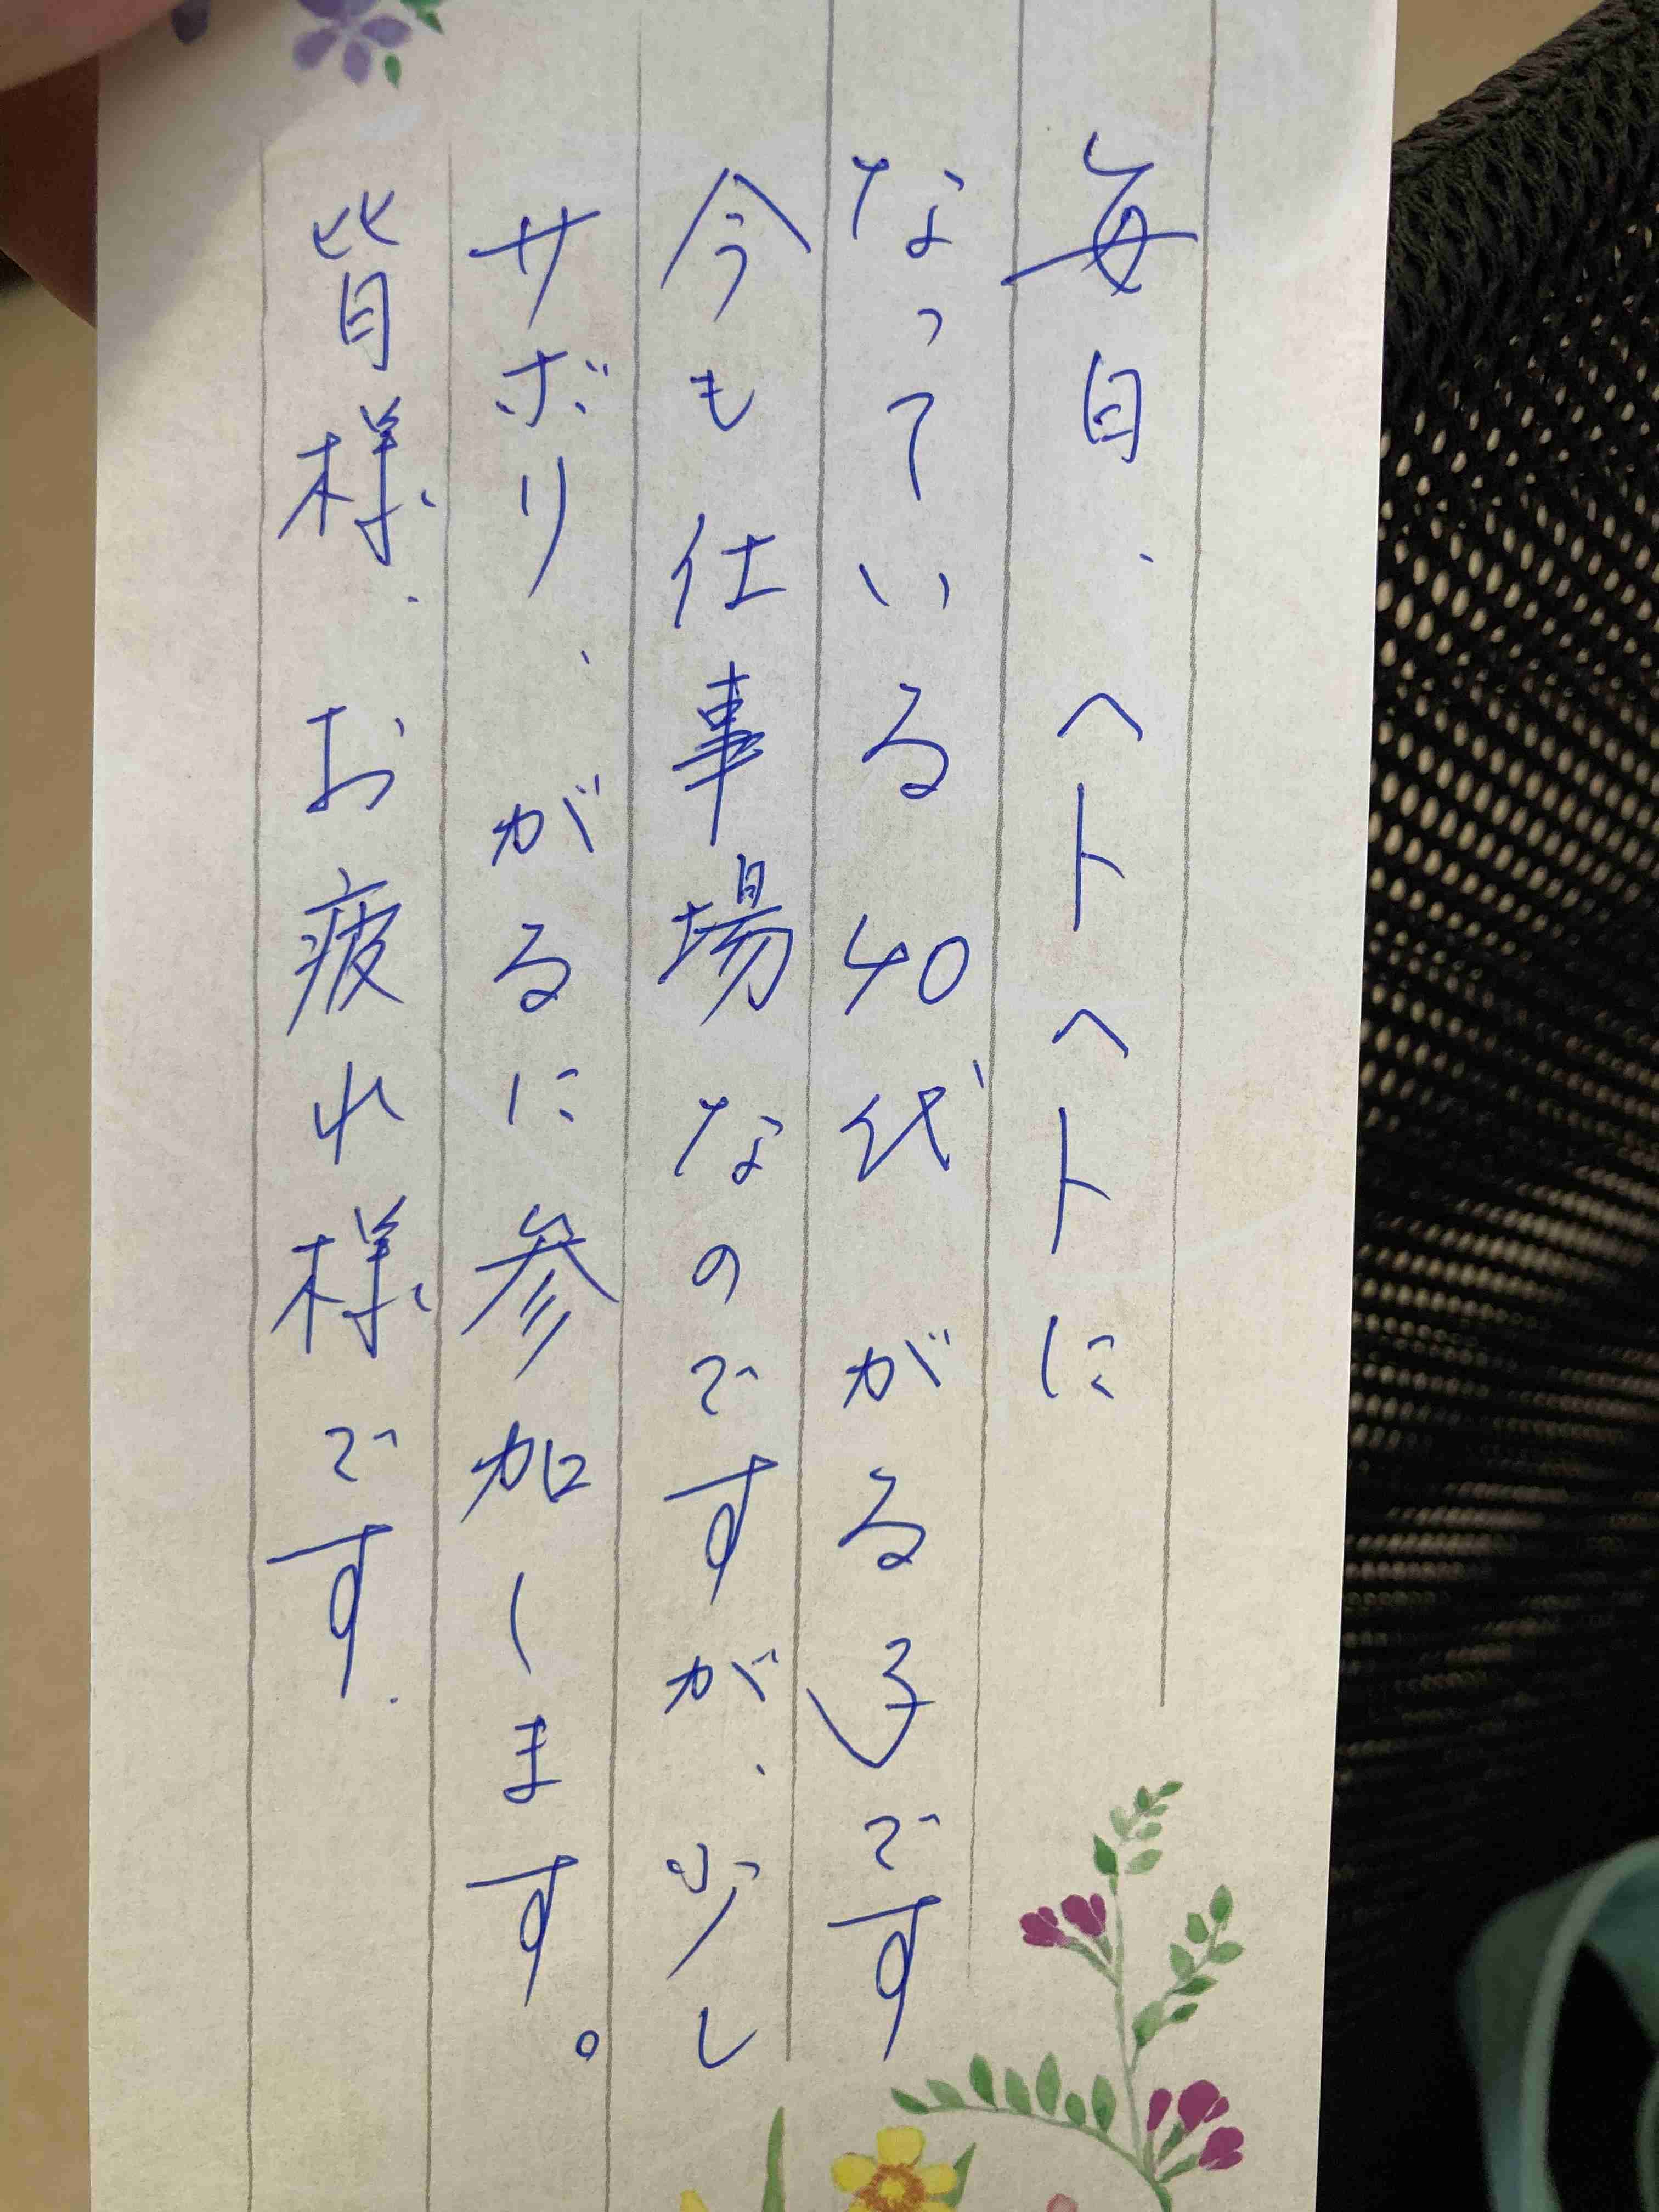 毎日、ヘトヘトに
なっている40代がるるです
今も仕事場なのですが、少し
サボリ、がるるに参加します。
皆様、お疲れ様です.